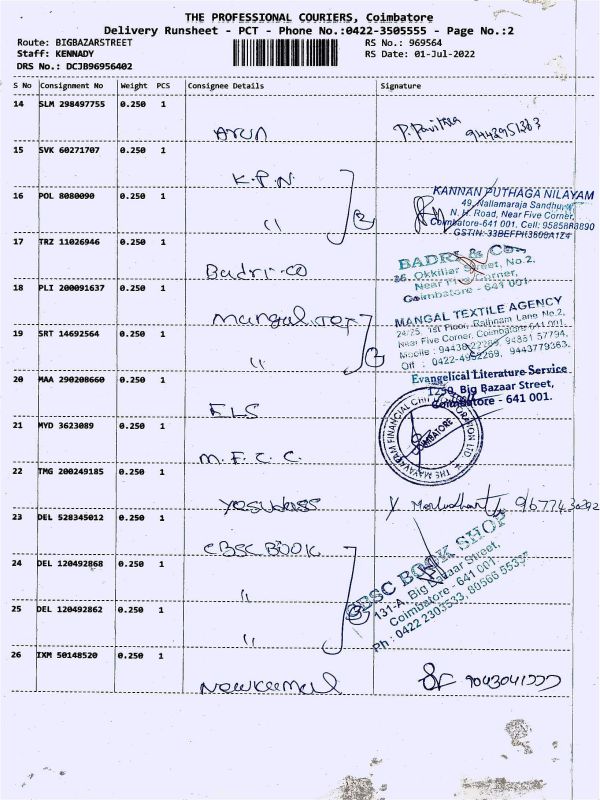 THE PROFESSIONAL COURIERS, Coimbatore
Delivery Runsheet - PCT - Phone No.:0422-3505555 - Page No.:2
Route: BIGBAZARSTREET
RS No.: 969564
Staff: KENNADY
RS Date: 01-Jul-2022
DRS No.: DCJB96956402
S No Consignment No Weight PCS Consignee Details Signature
14 SLM 298497755 0.250 1
Arun P. Pavithra 9442951363
15 SVK 60271707 0.250 1
K.P.N.
16 POL 8080090 0.250 1
" 2
KANNAN PUTHAGA NILAYAM
49, Nallamaraja Sandhu,
N. H. Road, Near Five Corner,
Coimbatore-641 001. Cell:
17 TRZ 11026946 0.250 1
Badri-co
BADRI & Co.
Okkiliar Street, No.2,
Near Five Corner,
Coimbatore - 641 001.
18 PLI 200091637 0.250 1
Mangal Tex
19 SRT 14692564 0.250 1
" 2
MANGAL TEXTILE AGENCY
24/25, 1st Floor, Rathnam Lane No.2,
Near Five Corner, Coimbatore 641 001.
Mobile : 94851 57794,
Off : 9443779363.
20 MAA 290208660 0.250 1
ELS
Evangelical Literature Service
Big Bazaar Street,
Coimbatore - 641 001.
21 MYD 3623089 0.250 1
M.F.C.C.
COIMBATORE
22 TMG 200249185 0.250 1
Yesudass
23 DEL 528345012 0.250 1
CBSC BOOK
24 DEL 120492868 0.250 1
"
25 DEL 120492862 0.250 1
" 3
CBSC BOOK SHOP
131-A, Big Bazaar Street,
Coimbatore - 641 001.
Ph : 0422 2303533, 80566 55537
26 IXM 50148520 0.250 1